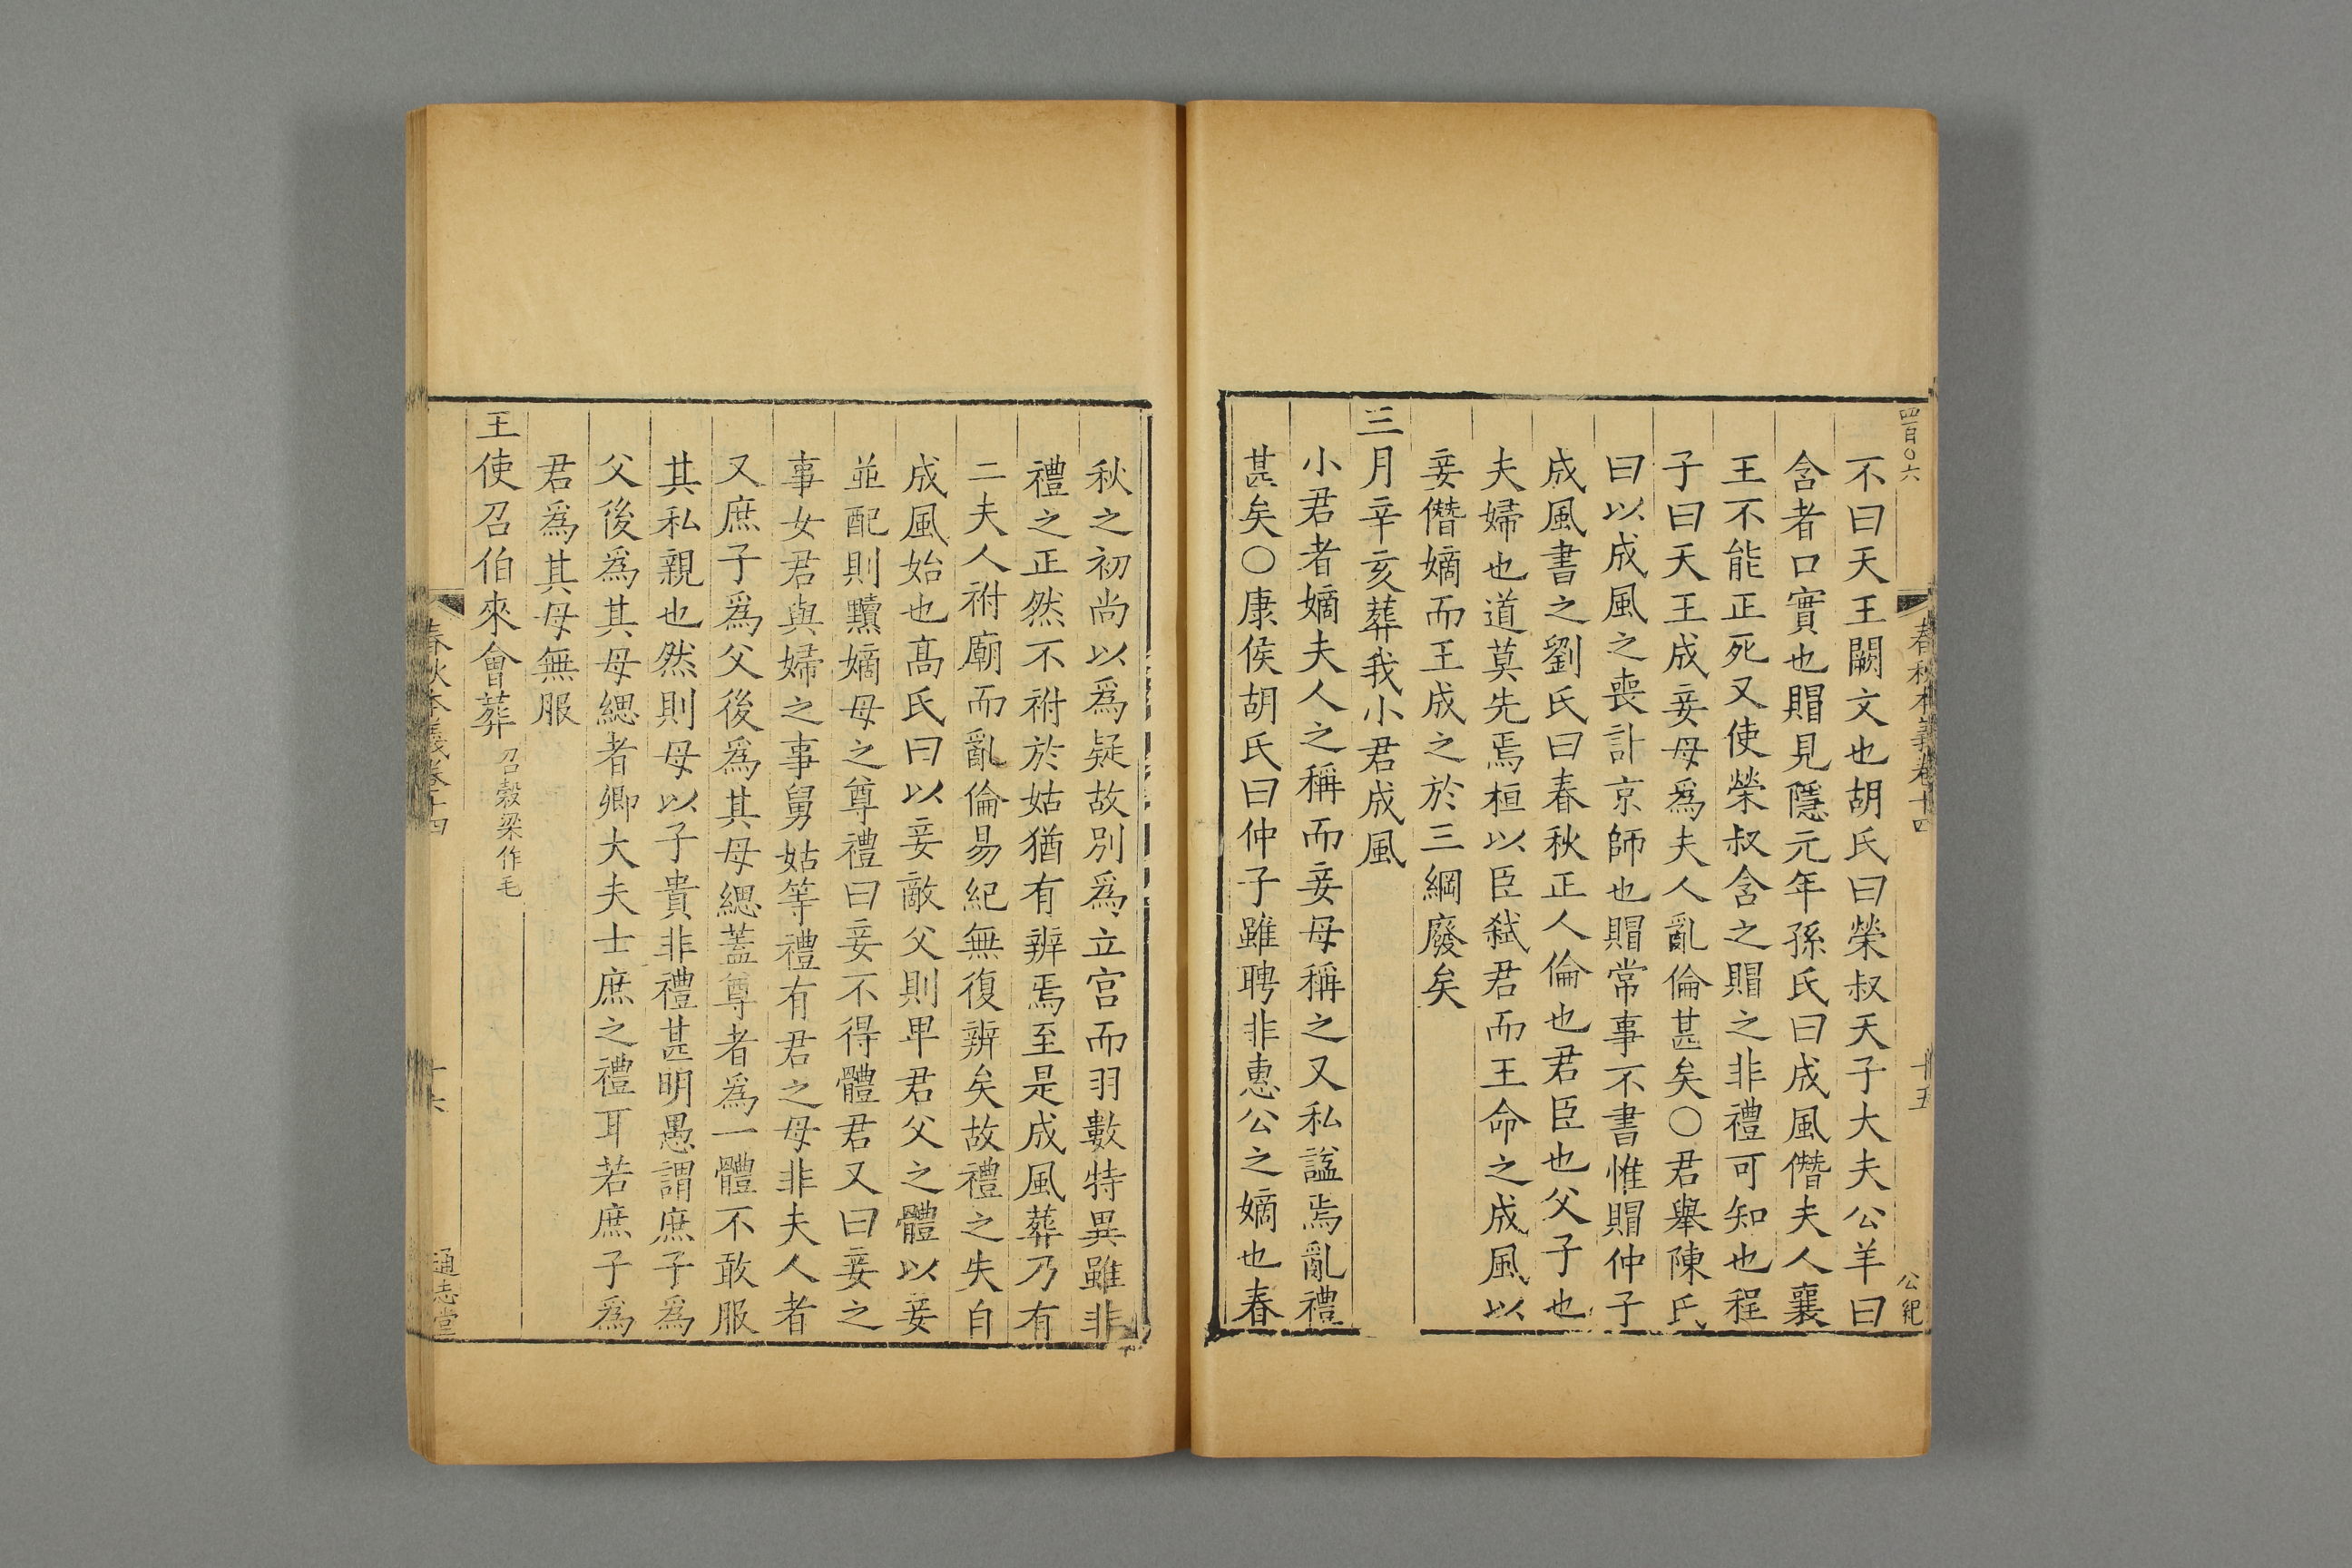 四百〇六
春秋本義卷十四
十五
公紀
不曰天王闕文也胡氏曰榮叔天子大夫公羊曰
含者口實也賵見隱元年孫氏曰成風僭夫人襄
王不能正死又使榮叔含之賵之非禮可知也程
子曰天王成妾母爲夫人亂倫甚矣○君舉陳氏
曰以成風之喪訃京師也賵常事不書惟賵仲子
成風書之劉氏曰春秋正人倫也君臣也父子也
夫婦也道莫先焉桓以臣弑君而王命之成風以
妾僭嫡而王成之於三綱廢矣
三月辛亥葬我小君成風
小君者嫡夫人之稱而妾母稱之又私諡焉亂禮
甚矣○康侯胡氏曰仲子雖聘非惠公之嫡也春
秋之初尚以爲疑故別爲立宮而羽數特異雖非
禮之正然不祔於姑猶有辨焉至是成風葬乃有
二夫人祔廟而亂倫易紀無復辨矣故禮之失自
成風始也高氏曰以妾敵父則卑君父之體以妾
並配則黷嫡母之尊禮曰妾不得體君又曰妾之
事女君與婦之事舅姑等禮有君之母非夫人者
又庶子爲父後爲其母緦蓋尊者爲一體不敢服
其私親也然則母以子貴非禮甚明愚謂庶子爲
父後爲其母緦者卿大夫士庶之禮耳若庶子爲
君爲其母無服
王使召伯來會葬召穀梁作毛
春秋本義卷十四
十六
通志堂